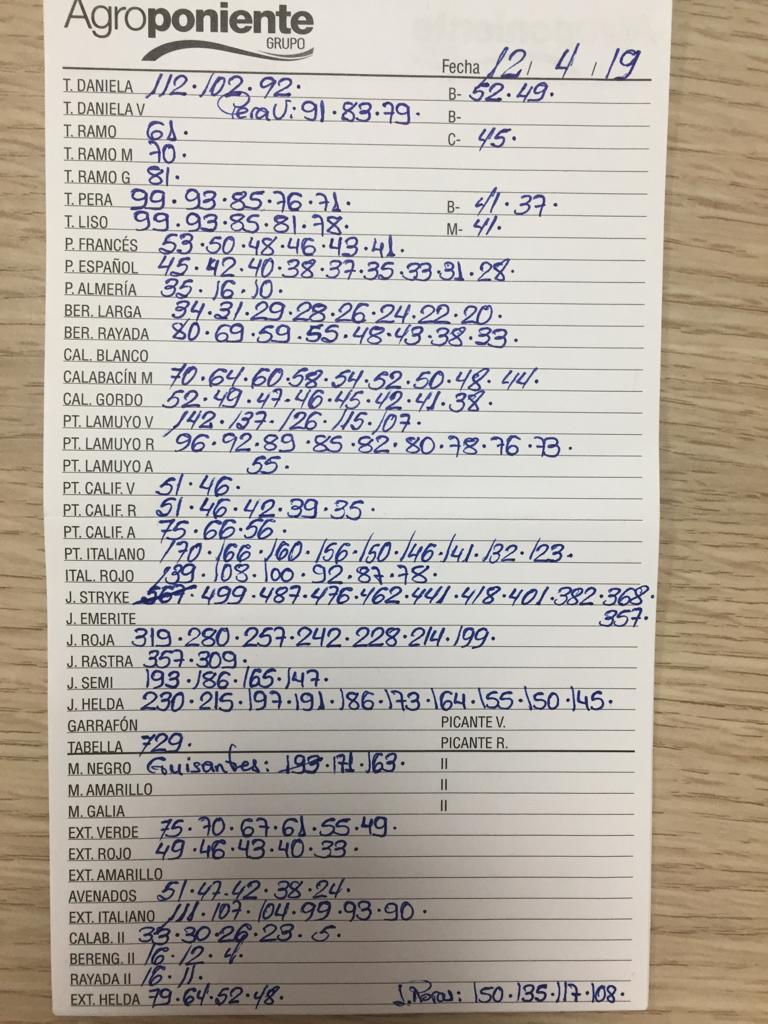 Agroponiente
GRUPO
Fecha 12 / 4 / 19
T. DANIELA 112 · 102 · 92 · B- 52 · 49 ·
T. DANIELA V Pera V: 91 · 83 · 79 · B-
T. RAMO 61 · C- 45 ·
T. RAMO M 70 ·
T. RAMO G 81 ·
T. PERA 99 · 93 · 85 · 76 · 71 · B- 41 · 37 ·
T. LISO 99 · 93 · 85 · 81 · 78 · M- 41 ·
P. FRANCÉS 53 · 50 · 48 · 46 · 43 · 41 ·
P. ESPAÑOL 45 · 42 · 40 · 38 · 37 · 35 · 33 · 31 · 28 ·
P. ALMERÍA 35 · 16 · 10 ·
BER. LARGA 34 · 31 · 29 · 28 · 26 · 24 · 22 · 20 ·
BER. RAYADA 80 · 69 · 59 · 55 · 48 · 43 · 38 · 33 ·
CAL. BLANCO
CALABACÍN M 70 · 64 · 60 · 58 · 54 · 52 · 50 · 48 · 44 ·
CAL. GORDO 52 · 49 · 47 · 46 · 45 · 42 · 41 · 38 ·
PT. LAMUYO V 142 · 137 · 126 · 115 · 107 ·
PT. LAMUYO R 96 · 92 · 89 · 85 · 82 · 80 · 78 · 76 · 73 ·
PT. LAMUYO A 55 ·
PT. CALIF. V 51 · 46 ·
PT. CALIF. R 51 · 46 · 42 · 39 · 35 ·
PT. CALIF. A 75 · 66 · 56 ·
PT. ITALIANO 170 · 166 · 160 · 156 · 150 · 146 · 141 · 132 · 123 ·
ITAL. ROJO 139 · 108 · 100 · 92 · 87 · 78 ·
J. STRYKE 567 · 499 · 487 · 476 · 462 · 441 · 418 · 401 · 382 · 368 ·
J. EMERITE 357 ·
J. ROJA 319 · 280 · 257 · 242 · 228 · 214 · 199 ·
J. RASTRA 357 · 309 ·
J. SEMI 193 · 186 · 165 · 147 ·
J. HELDA 230 · 215 · 197 · 191 · 186 · 173 · 164 · 155 · 150 · 145 ·
GARRAFÓN PICANTE V.
TABELLA 729 · PICANTE R.
M. NEGRO Guisantes: 193 · 171 · 163 · II
M. AMARILLO II
M. GALIA II
EXT. VERDE 75 · 70 · 67 · 61 · 55 · 49 ·
EXT. ROJO 49 · 46 · 43 · 40 · 33 ·
EXT. AMARILLO
AVENADOS 51 · 47 · 42 · 38 · 24 ·
EXT. ITALIANO 111 · 107 · 104 · 99 · 93 · 90 ·
CALAB. II 33 · 30 · 26 · 23 · 5 ·
BERENG. II 16 · 12 · 4 ·
RAYADA II 16 · 11 ·
EXT. HELDA 79 · 64 · 52 · 48 · J. 150 · 135 · 117 · 108 ·